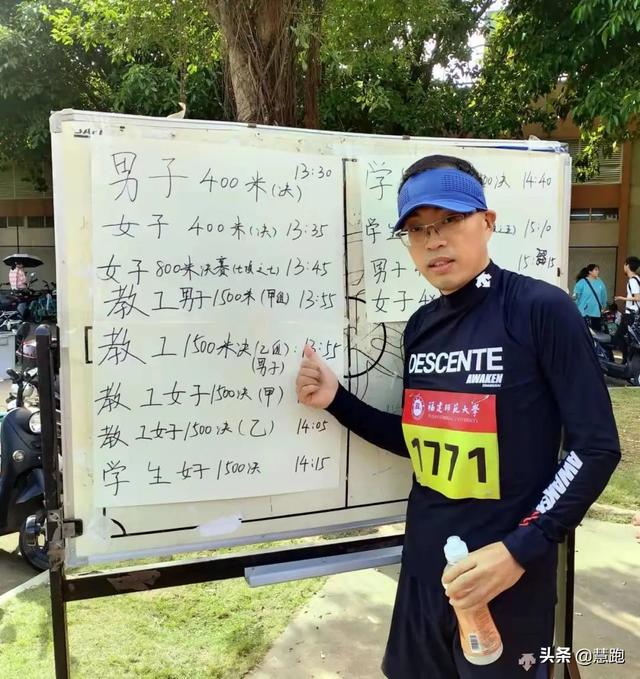 男子 400米(决) 13:30
女子 400米(决) 13:35
女子800米决赛(七项之七) 13:45
教工男子1500米(甲组) 13:55
教工1500米决(乙组) 13:55
(男子)
教工女子1500决(甲)
教工女子1500决(乙) 14:05
学生女子1500决 14:15
学 00决 14:40
学生 15:10
男子 15:15
女子4×
DESCENTE
AWAKEN
福建师范大学
1771
AWAKEN
头条 @慧跑